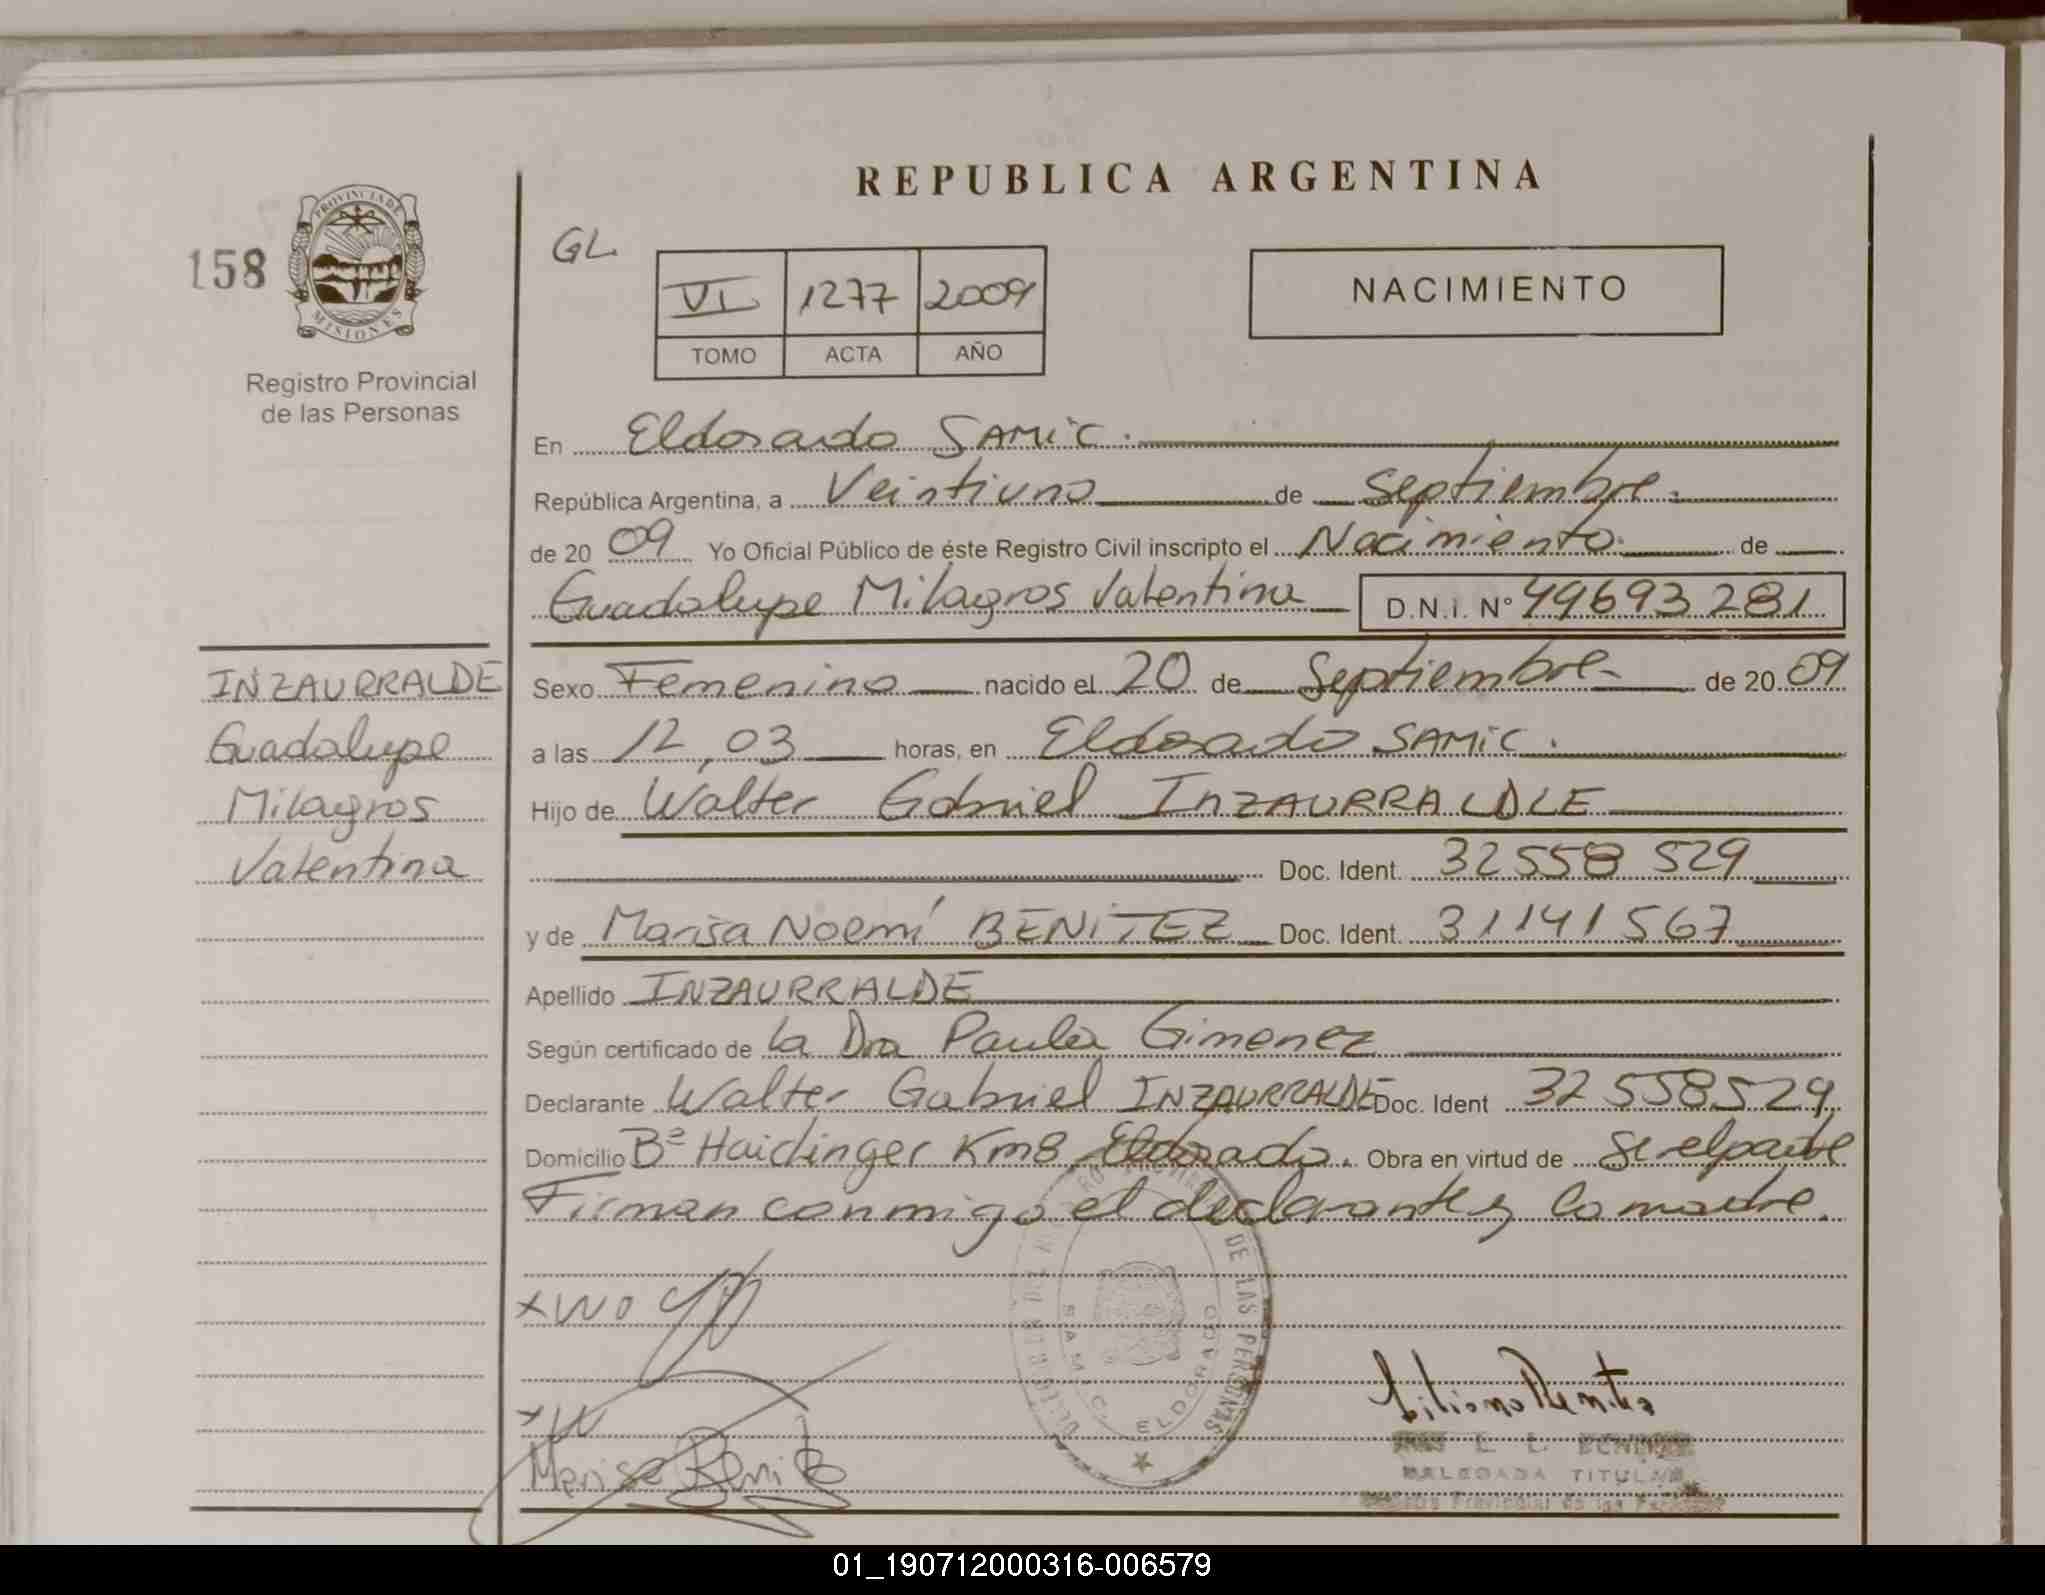 REPUBLICA ARGENTINA
158
PROVINCIA DE
MISIONES
Registro Provincial
de las Personas
GL
VI 1277 2009
TOMO ACTA AÑO
NACIMIENTO
En Eldorado SAMiC.
República Argentina, a Veintiuno de Septiembre.
de 20 09 Yo Oficial Público de éste Registro Civil inscripto el Nacimiento de
Guadalupe Milagros Valentina D.N.I. N° 49693281
INZAURRALDE
Guadalupe
Milagros
Valentina
Sexo Femenino nacido el 20 de Septiembre de 20 09
a las 12,03 horas, en Eldorado SAMiC.
Hijo de Walter Gabriel INZAURRALDE
Doc. Ident. 32558529
y de Marisa Noemí BENiTEZ Doc. Ident. 31141567
Apellido INZAURRALDE
Según certificado de la Dra Paula Gimenez
Declarante Walter Gabriel INZAURRALDE Doc. Ident 32558529
Domicilio Bº Haidinger Km8 Eldorado. Obra en virtud de Ser el padre
Firman conmigo el declarante y la madre.
DE LAS PERSONAS
S.A.M.I.C. ELDORADO
Marisa Benitez
DELEGADA TITULAR
Registro Provincial de las Personas
01_190712000316-006579